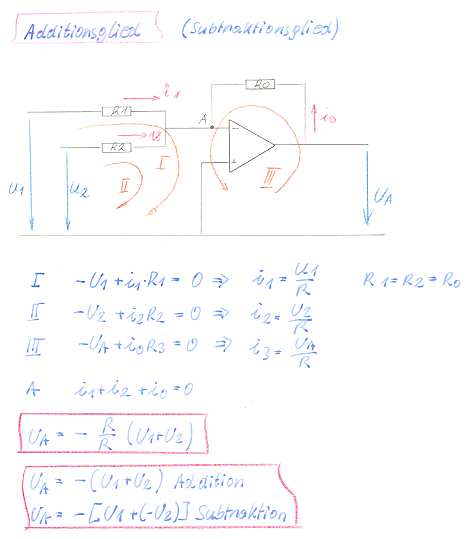 Additionsglied (Subtraktionsglied)
i1
R0
R1
A
i0
i2
R2
I
II
III
U1
U2
UA
-
+
I -U1 + i1·R1 = 0 ⇒ i1 = U1/R R1=R2=R0
II -U2 + i2R2 = 0 ⇒ i2 = U2/R
III -UA + i0R3 = 0 ⇒ i3 = UA/R
A i1+i2+i0=0
UA = - R/R (U1+U2)
UA = -(U1+U2) Addition
UA = -[U1+(-U2)] Subtraktion